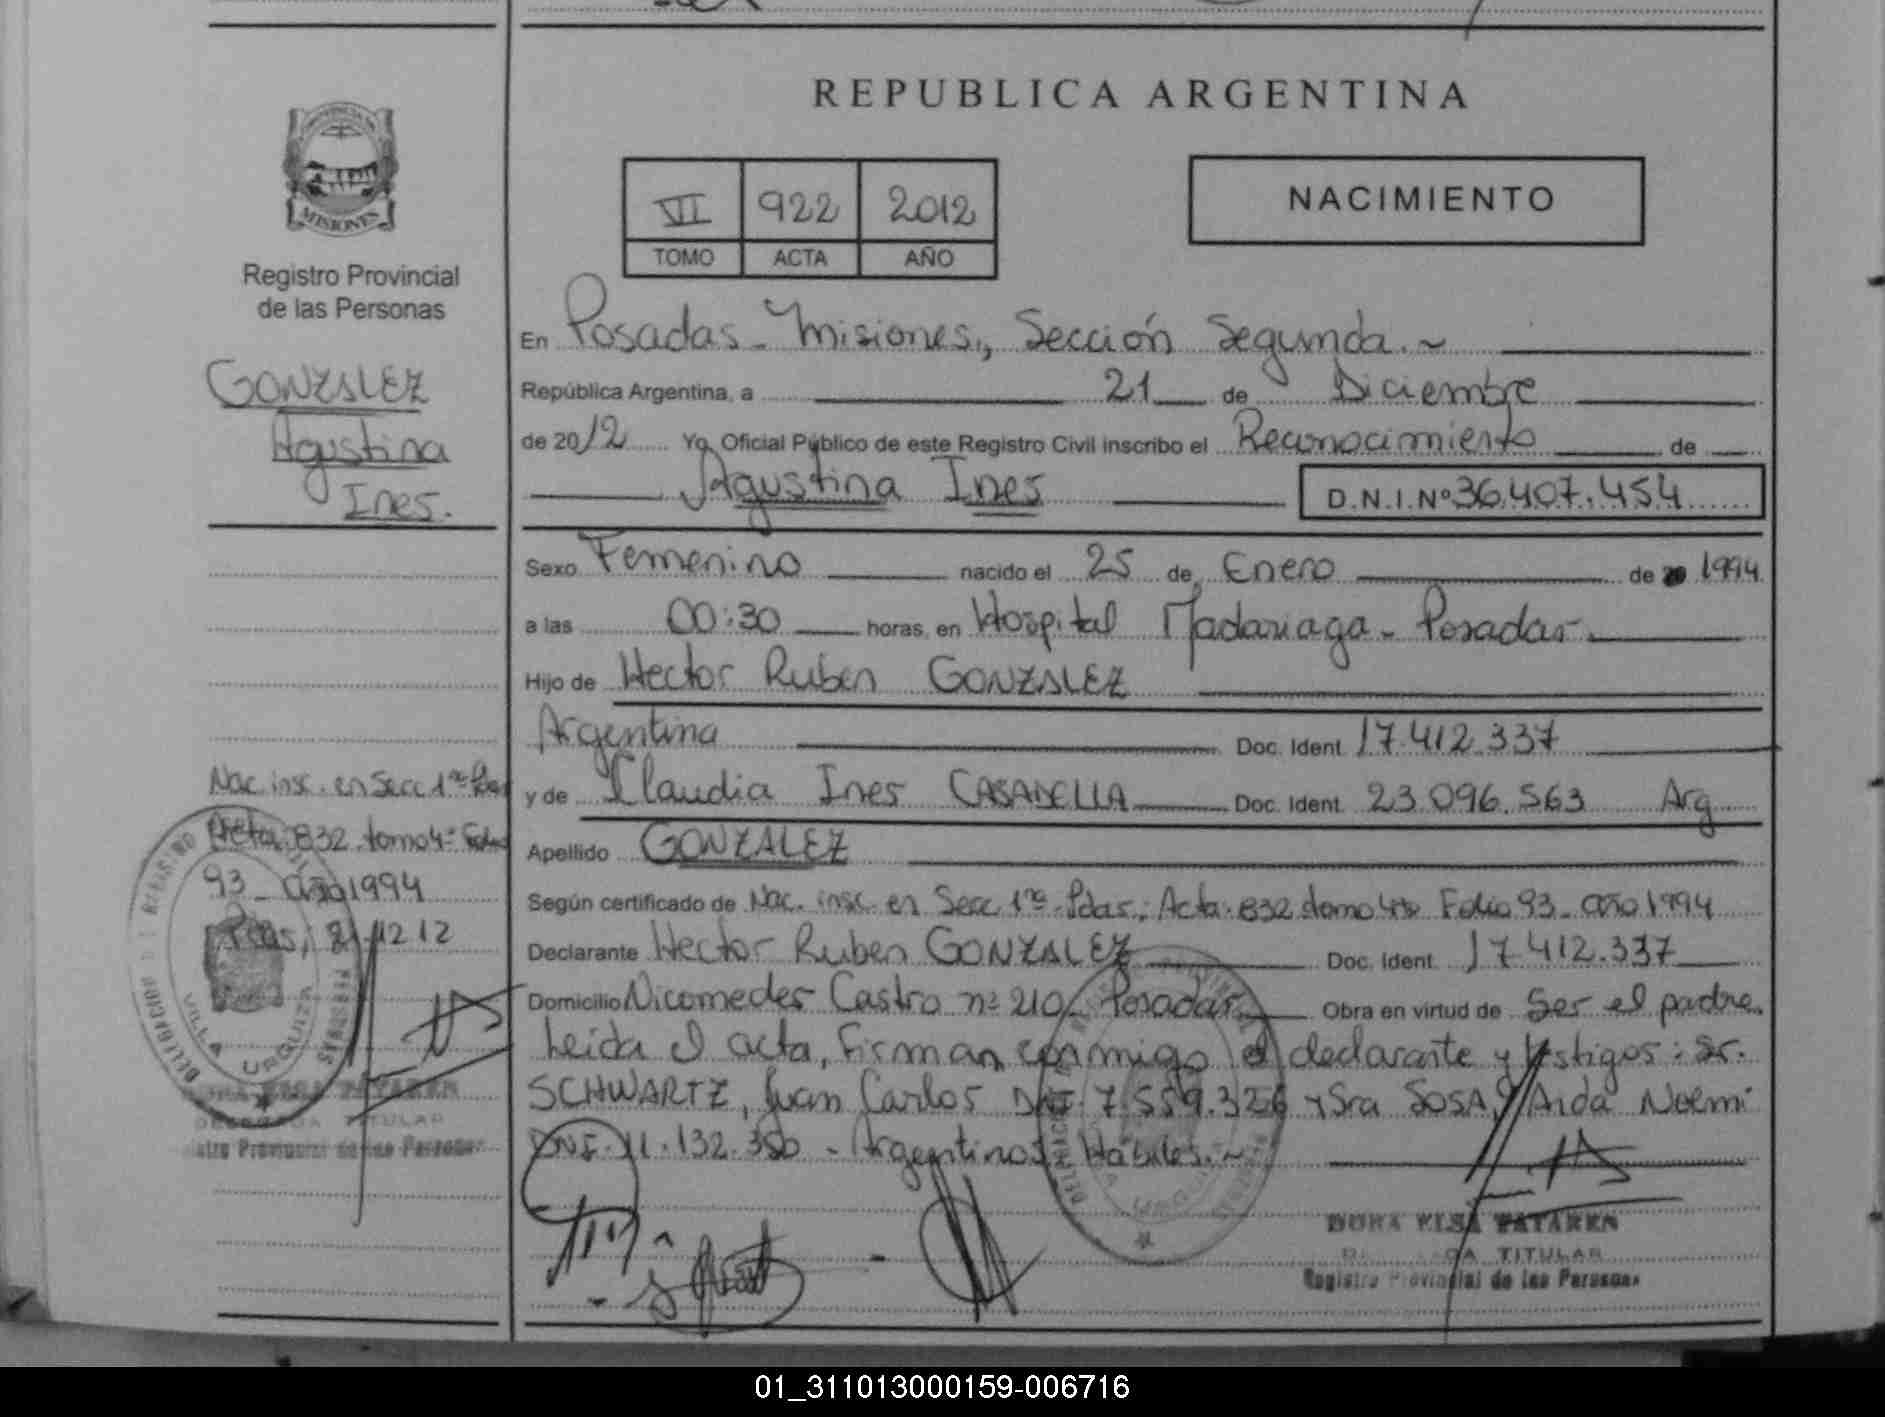 REPUBLICA ARGENTINA
PROVINCIA DE
MISIONES
Registro Provincial
de las Personas
GONZALEZ
Agustina
Ines.
Nac. insc. en Secc 1ra Pdas
Acta: 832 tomo 4º Folio
93 - año 1994
Pdas, 21-12 12
DELEGACION
VILLA URQUIZA
DORA ELSA TATAREN
DELEGADA TITULAR
Registro Provincial de las Personas
VII 922 2012
TOMO ACTA AÑO
NACIMIENTO
En Posadas - Misiones, Sección Segunda.~
República Argentina, a 21 de Diciembre
de 2012 Yo, Oficial Público de este Registro Civil inscribo el Reconocimiento de
Agustina Ines D.N.I.Nº 36.407.454
Sexo Femenino nacido el 25 de Enero de 1994
a las 00:30 horas, en Hospital Madariaga - Posadas
Hijo de Hector Ruben GONZALEZ
Argentina Doc. Ident. 17.412.337
y de Claudia Ines CASADELLA Doc. Ident. 23.096.563 Arg
Apellido GONZALEZ
Según certificado de Nac. insc. en Secc 1ra Pdas; Acta: 832 tomo 4to Folio 93 - año 1994
Declarante Hector Ruben GONZALEZ Doc. Ident. 17.412.337
Domicilio Nicomedes Castro nº 210 Posadas Obra en virtud de Ser el padre.
Leida el acta, firman conmigo el declarante y testigos: Sr.
SCHWARTZ, Juan Carlos DNI 7.559.326 y Sra SOSA, Aida Noemi
DNI. 11.132.350 - Argentinos Habiles.~
DORA ELSA TATAREN
TITULAR
Registro Provincial de las Personas
01_311013000159-006716